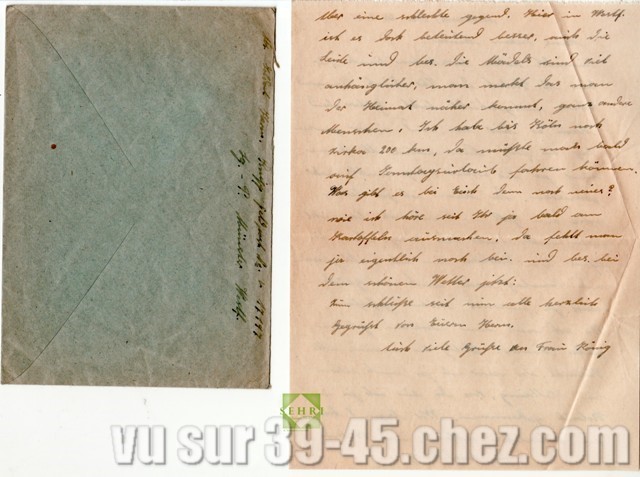 über eine schlechte gegend. Hier in Westf.
ist es doch bedeutend besser, auch die
Leute und bes. die Mädels sind viel
anhänglicher, man merkt das man
der Heimat näher kommt, ganz andere
Menschen. Ich habe bis Köln noch
zirka 200 km, da müsste man bald
auf Sonntagsurlaub fahren können.
Was gibt es bei Euch denn noch neues?
wie ich höre seit Ihr ja bald am
Kartoffeln ausmachen. Da fehlt man
ja eigentlich noch bei. und bes. bei
dem schönen Wetter jetzt.
Zum schluße seit nun alle herzlich
Gegrüßt von Euern Herm.
Auch viele Grüße an Frau König
Feldpost
Münster Westf.
EHRI
vu sur 39-45.chez.com